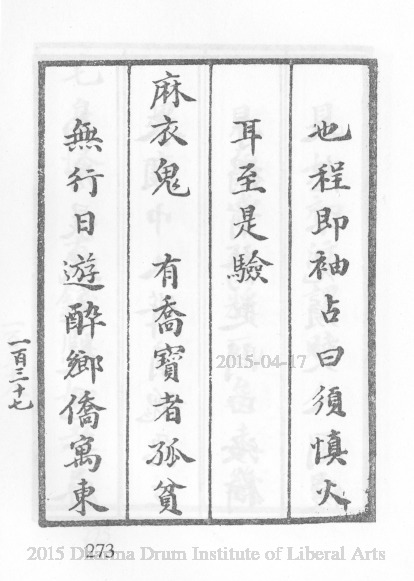 也程即袖占曰須慎火
耳至是驗
麻衣鬼 有喬寶者孤貧
無行日遊醉鄉僑寓東
一百三十七
2015-04-17
273
2015 Dharma Drum Institute of Liberal Arts